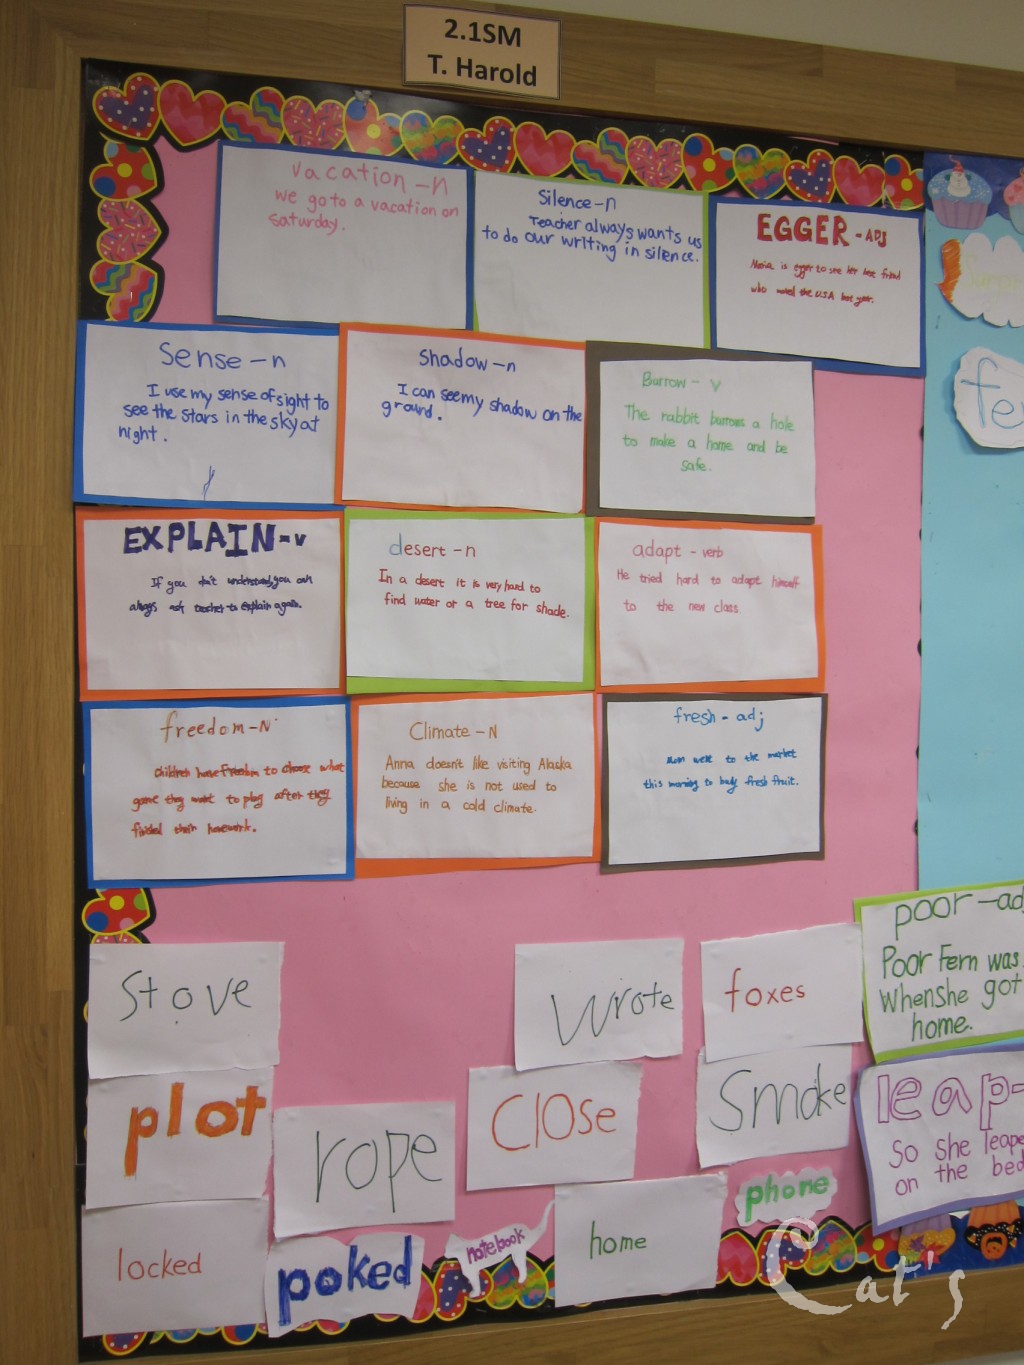 2.1SM
T. Harold
vacation - n
we go to a vacation on
saturday.
Silence - n
Teacher always wants us
to do our writing in silence.
EGGER - ADJ
Maria is egger to see her best friend
who moved the U.S.A last year.
Sense - n
I use my sense of sight to
see the stars in the sky at
night.
Shadow - n
I can see my shadow on the
ground.
Burrow - v
The rabbit burrows a hole
to make a home and be
safe.
EXPLAIN - v
If you don't understand, you can
always ask teacher to explain again.
desert - n
In a desert it is very hard to
find water or a tree for shade.
adapt - verb
He tried hard to adapt himself
to the new class
freedom - N
children have freedom to choose what
game they want to play after they
finished their homework.
Climate - N
Anna doesn't like visiting Alaska
because she is not used to
living in a cold climate.
fresh - adj
Mom went to the market
this morning to buy fresh fruit.
Stove
Wrote
foxes
poor - ad
Poor Fern was
When She got
home.
plot
rope
Close
Smoke
leap -
So she leape
on the bed
locked
poked
notebook
home
phone
Cat's